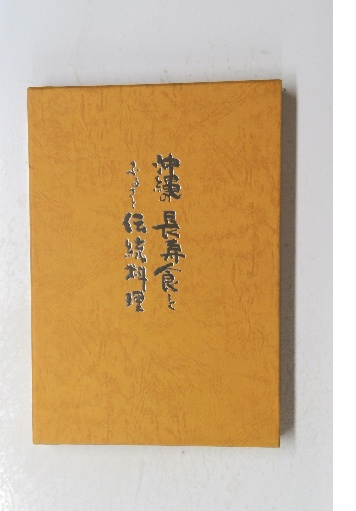 沖縄の長寿食と
ふるさと伝統料理